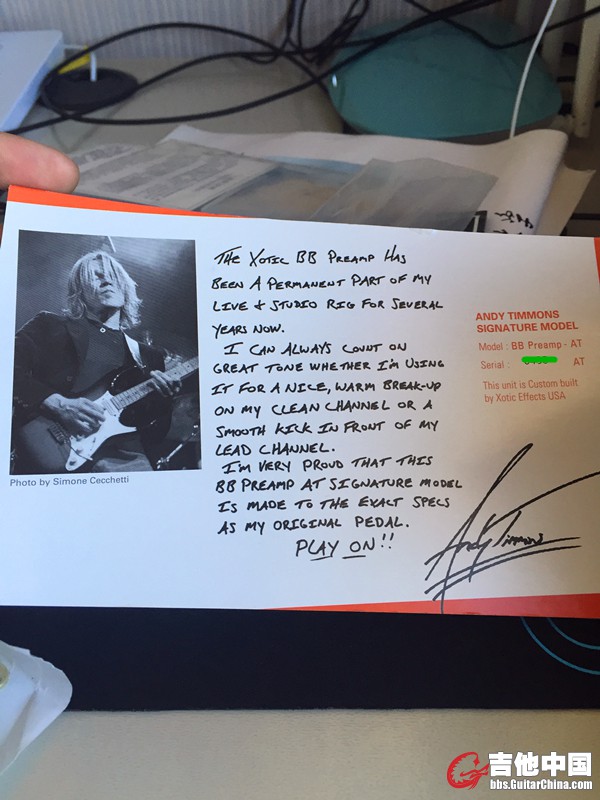 THE XOTIC BB PREAMP HAS
BEEN A PERMANENT PART OF MY
LIVE & STUDIO RIG FOR SEVERAL
YEARS NOW.
I CAN ALWAYS COUNT ON
GREAT TONE WHETHER I'M USING
IT FOR A NICE, WARM BREAK-UP
ON MY CLEAN CHANNEL OR A
SMOOTH KICK IN FRONT OF MY
LEAD CHANNEL.
I'M VERY PROUD THAT THIS
BB PREAMP AT SIGNATURE MODEL
IS MADE TO THE EXACT SPECS
AS MY ORIGINAL PEDAL.
PLAY ON!!
Andy Timmons
Photo by Simone Cecchetti
ANDY TIMMONS
SIGNATURE MODEL
Model : BB Preamp - AT
Serial : AT
This unit is Custom built
by Xotic Effects USA
吉他中国
bbs.GuitarChina.com